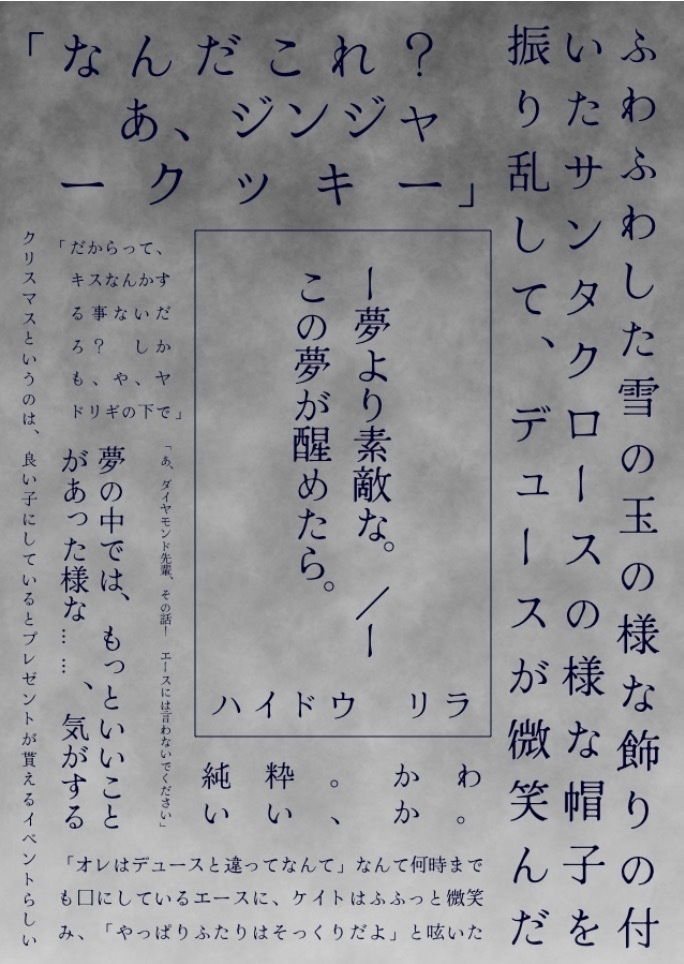 ふわふわした雪の玉の様な飾りの付
いたサンタクロースの様な帽子を
振り乱して、デュースが微笑んだ
「なんだこれ？
あ、ジンジャ
ークッキー」
ー夢より素敵な。／ー
この夢が醒めたら。
ハイドウ　リラ
純粋。かわ
いい、か。
「だからって、
キスなんかす
る事ないだ
ろ？　しか
も、や、ヤ
ドリギの下で」
「あ、ダイヤモンド先輩、その話！　エースには言わないでください」
夢の中では、もっといいこと
があった様な……、気がする
クリスマスというのは、良い子にしているとプレゼントが貰えるイベントらしい
「オレはデュースと違ってなんて」なんて何時まで
も口にしているエースに、ケイトはふふっと微笑
み、「やっぱりふたりはそっくりだよ」と呟いた